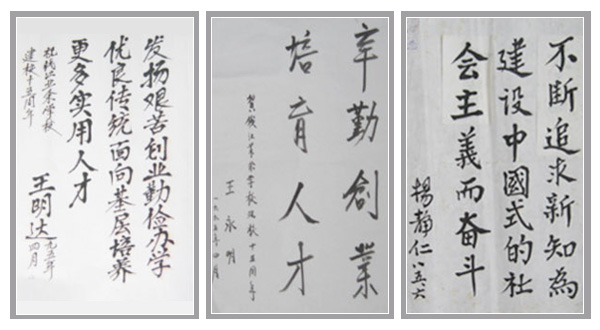 发扬艰苦创业勤俭办学
优良传统面向基层培养
更多实用人才
祝钱江业余学校
建校十五周年
王明达
一九九五年
四月
辛勤創業
培育人才
賀钱江業余学校建校十五周年
王永明
一九九五年四月
不斷追求新知為
建设中國式的社
会主義而奋斗
楊静仁 八五六